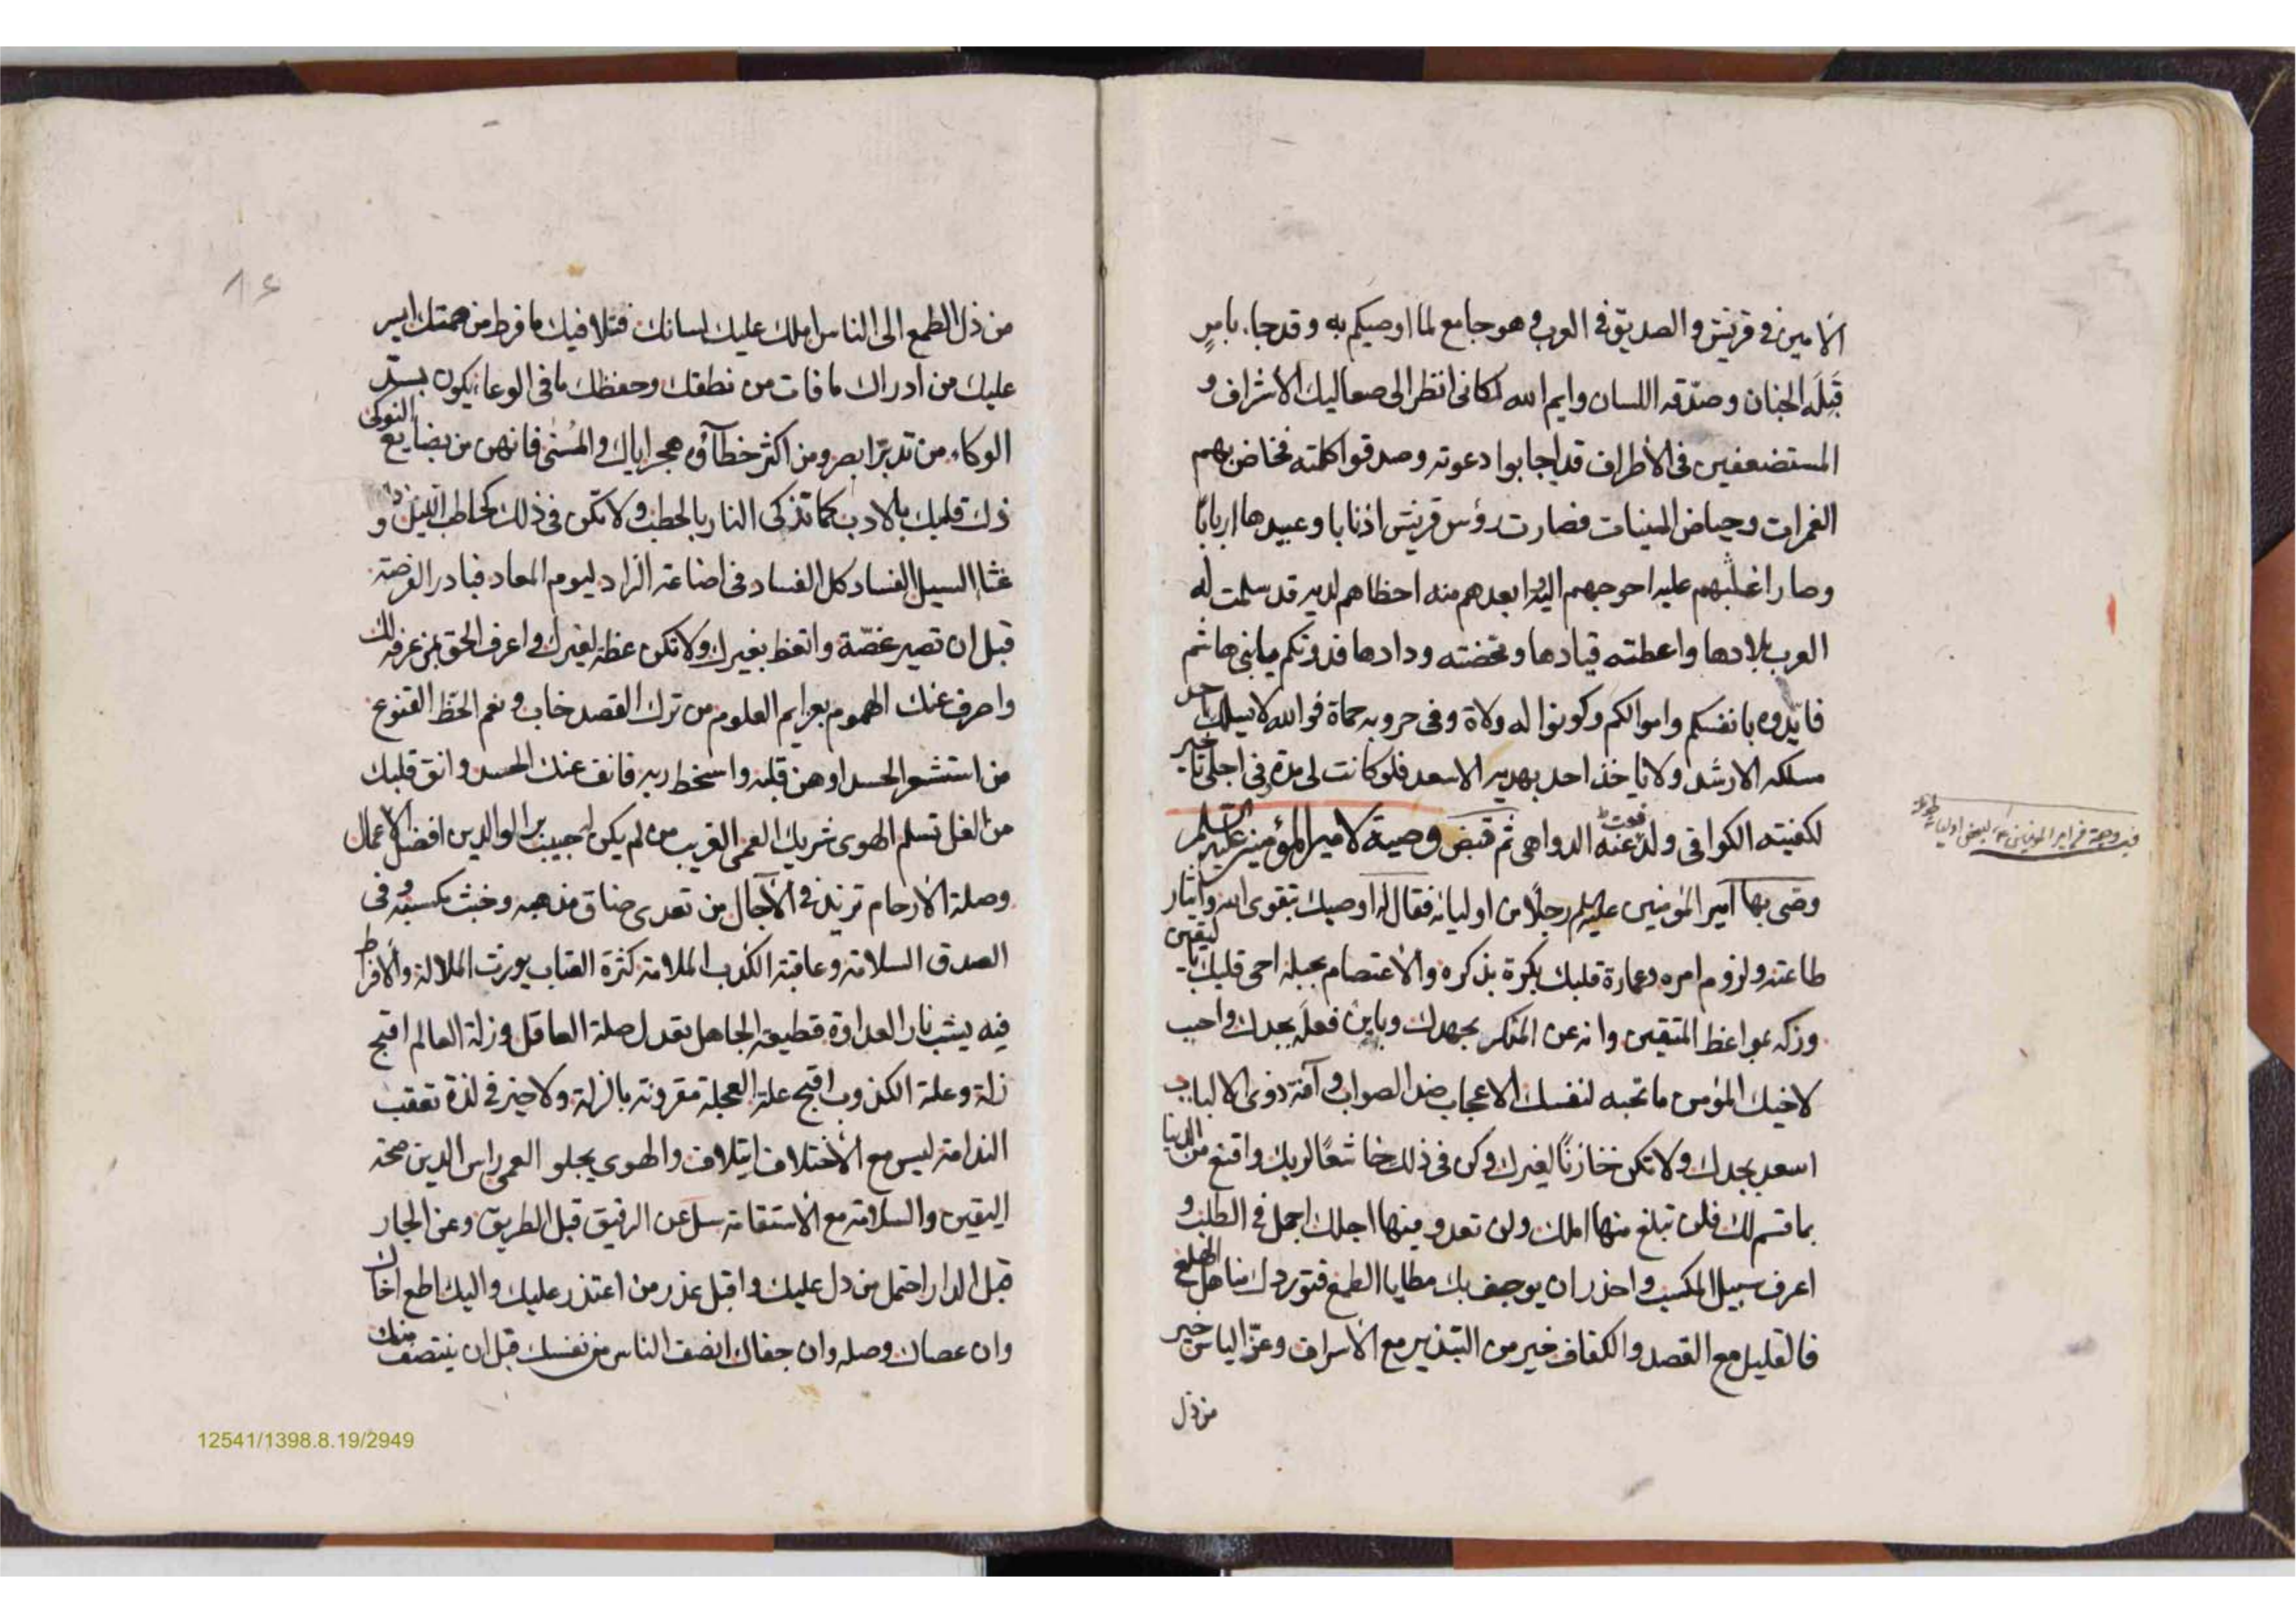 الامين في قريش والصديق في العرب وهو جامع لما اوصيكم به وقد جاء بامرٍ
قَبِلَه الجنان وصدّقه اللسان وايم الله لكانى انظر الى صعاليك الاشراف و
المستضعفين فى الاطراف قد اجابوا دعوته وصدقوا كلمته فخاض بهم
الغمرات وحياض المنيات فصارت رؤس قريش اذنابا وعبيدها اربابًا
وصار اغلبهم عليه احوجهم اليه وابعدهم منه احظاهم لديه قد سلمت له
العرب بلادها واعطته قيادها ومحضته ودادها فدونكم يا بنى هاشم
فايّدوه بانفسكم واموالكم وكونوا له ولاة وفى حروبه حماة فوالله لا يسلك احد
مسلكه الا رشد ولا ياخذ احد بهديه الا سعد فلو كانت لى مدة وفى اجلى تاخير
لكفيته الكوافى ولدفعت عنه الدواهى ثم قبض وصية لامير المؤمنين عليه السلم
وصى بها امير المؤمنين عليه السلم رجلًا من اوليائه فقال له اوصيك بتقوى الله وايثار
طاعته ولزوم امره وعمارة قلبك بكرة بذكره والاعتصام بحبله احى قلبك باليقين
وزكه بمواعظ المتقين وانه عن المنكر بجهدك وباين فعله بجدك واحب
لاخيك المؤمن ما تحبه لنفسك الاعجاب ضد الصواب وآفة ذوى الالباب
اسعد بجدك ولا تكن خازنًا لغيرك وكن فى ذلك خاشعًا لربك واقنع من الدنيا
بما قسم لك فلن تبلغ منها املك ولن تعدو منها اجلك اجمل فى الطلب و
اعرف سبيل المكسب واحذر ان يوجف بك مطايا الطمع فتوردك مناهل الهلع
فالقليل مع القصد والكفاف خير من التبذير مع الاسراف وعزّ الياس خير
من ذل
من ذل الطمع الى الناس املك عليك لسانك فتلافيك ما فرط من همتك ايسر
عليك من ادراك ما فات من نطقك وحفظك ما فى الوعا يكون بسدّ
الوكاء من تدبّر ابصر ومن اكثر خطاؤه هجر اياك والمُنى فانهن من بضايع النوكى
ذك قلبك بالادب كما تذكى النار بالحطب ولا تكن فى ذلك كحاطب الليل و
غثاء السيل الفساد كل الفساد فى اضاعة الزاد ليوم المعاد فبادر الفرصة
قبل ان تصير غصّة واتعظ بغيرك ولا تكن عظة لغيرك واعرف الحق لمن عرفه لك
واصرف عنك الهموم بعرايم العلوم من ترك القصد خاب ونعم الحظ القنوع
من استشعر الحسد اوهن قلبه واسخط ربه فانف عنك الحسد وانق قلبك
من الغل تسلم الهوى شريك العمى الغريب من لم يكن له حبيب بر الوالدين افضل الاعمال
وصلة الارحام تزيد فى الآجال من تعدى ضاق مذهبه وخبث مكسبه وفى
الصدق السلامة وعاقبة الكذب الملامة كثرة العتاب يورث الملالة والافراط
فيه يشب نار العداوة قطيعة الجاهل تعدل صلة العاقل وزلة العالم اقبح
زلة وعلة الكذوب اقبح علة العجلة مقرونة بالزلة ولا خير فى لذة تعقب
الندامة ليس مع الاختلاف ايتلاف والهوى يجلو العمى راس الدين صحة
اليقين والسلامة مع الاستقامة سل عن الرفيق قبل الطريق وعن الجار
قبل الدار احتمل من دل عليك واقبل عذر من اعتذر عليك واليك اطع اخاك
وان عصاك وصله وان جفاك انصف الناس من نفسك قبل ان ينتصف منك
12541/1398.8.19/2949